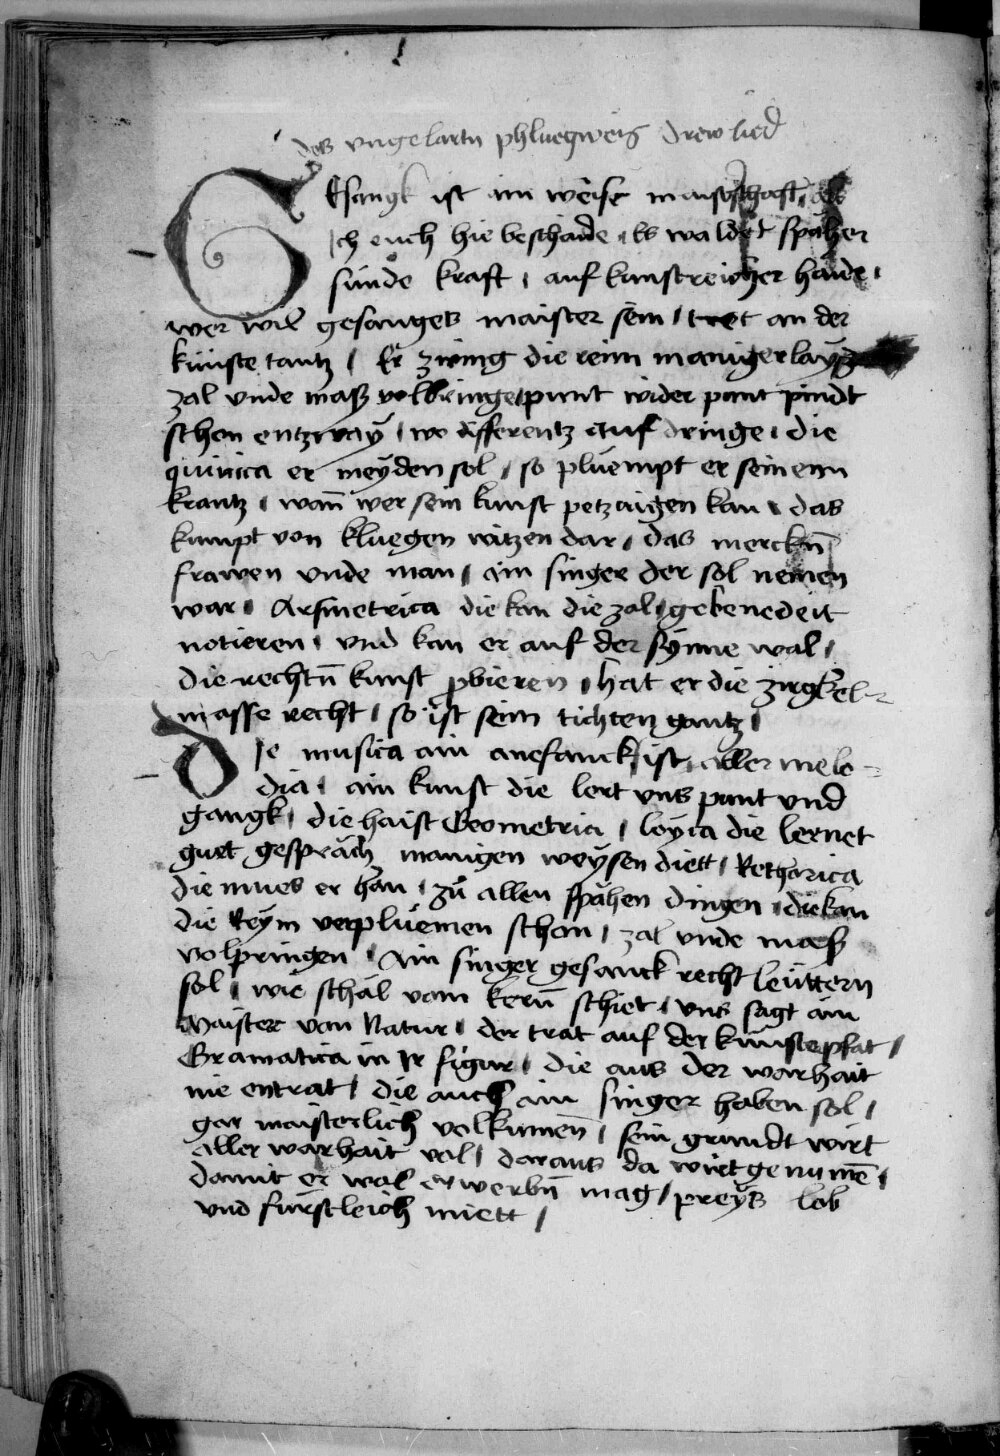 des vngelartn phluegweis drew lied
GEsangk ist ain weise maisterschaft, als
Ich euch hie beschaide, Es waldet spaher
sunde kraft, auf kunstreicher haide,
wer wil gesanges maister sein, tret an der
künste tantz, Er zwing die reim maniger lay
zal vnde mass volbringe, punt wider punt pindt
schon entzway, wo differentz auf dringe, die
quinca er meyden sol, so pluempt er sein enn
krantz, wan̄ wer sein kunst petzaigen kan, das
kumpt von kluegen witzen dar, das merckn̄
frawen vnde man, ain singer der sol nemen
war, Arsmetrica die kan die zal, gebenedeit
notieren, vnd kan er auf der synne wal,
die rechtn̄ kunst probieren, hat er die zirgkel
masse recht, so ist sein tichten gantz,
DIe musica ain anefanck ist, aller melo-
dia, ain kunst die lert vns punt vnd
gangk, die haist Geometria, loyca die lernet
guet gespräch manigen weysen diett, Rethorica
die mues er han, zů allen spähen dingen, die kan
die Reym verpluemen schon, zal vnde mass
volpringen, Ain singer gesanck recht leüttern
sol, wie schal vom kern̄ schiet, vns sagt ain
Maister von Natur, der trat auf der künste pfat,
Gramatica in Ir figur, die aus der warhait
nie entrat, die auch ain singer haben sol,
gar maisterlich volkumen̄, sein grundt wirt
aller warhait vol, daraus da wirt genumē,
damit er wol erwerbn̄ mag, preys lob
vnd fürstleich miett,